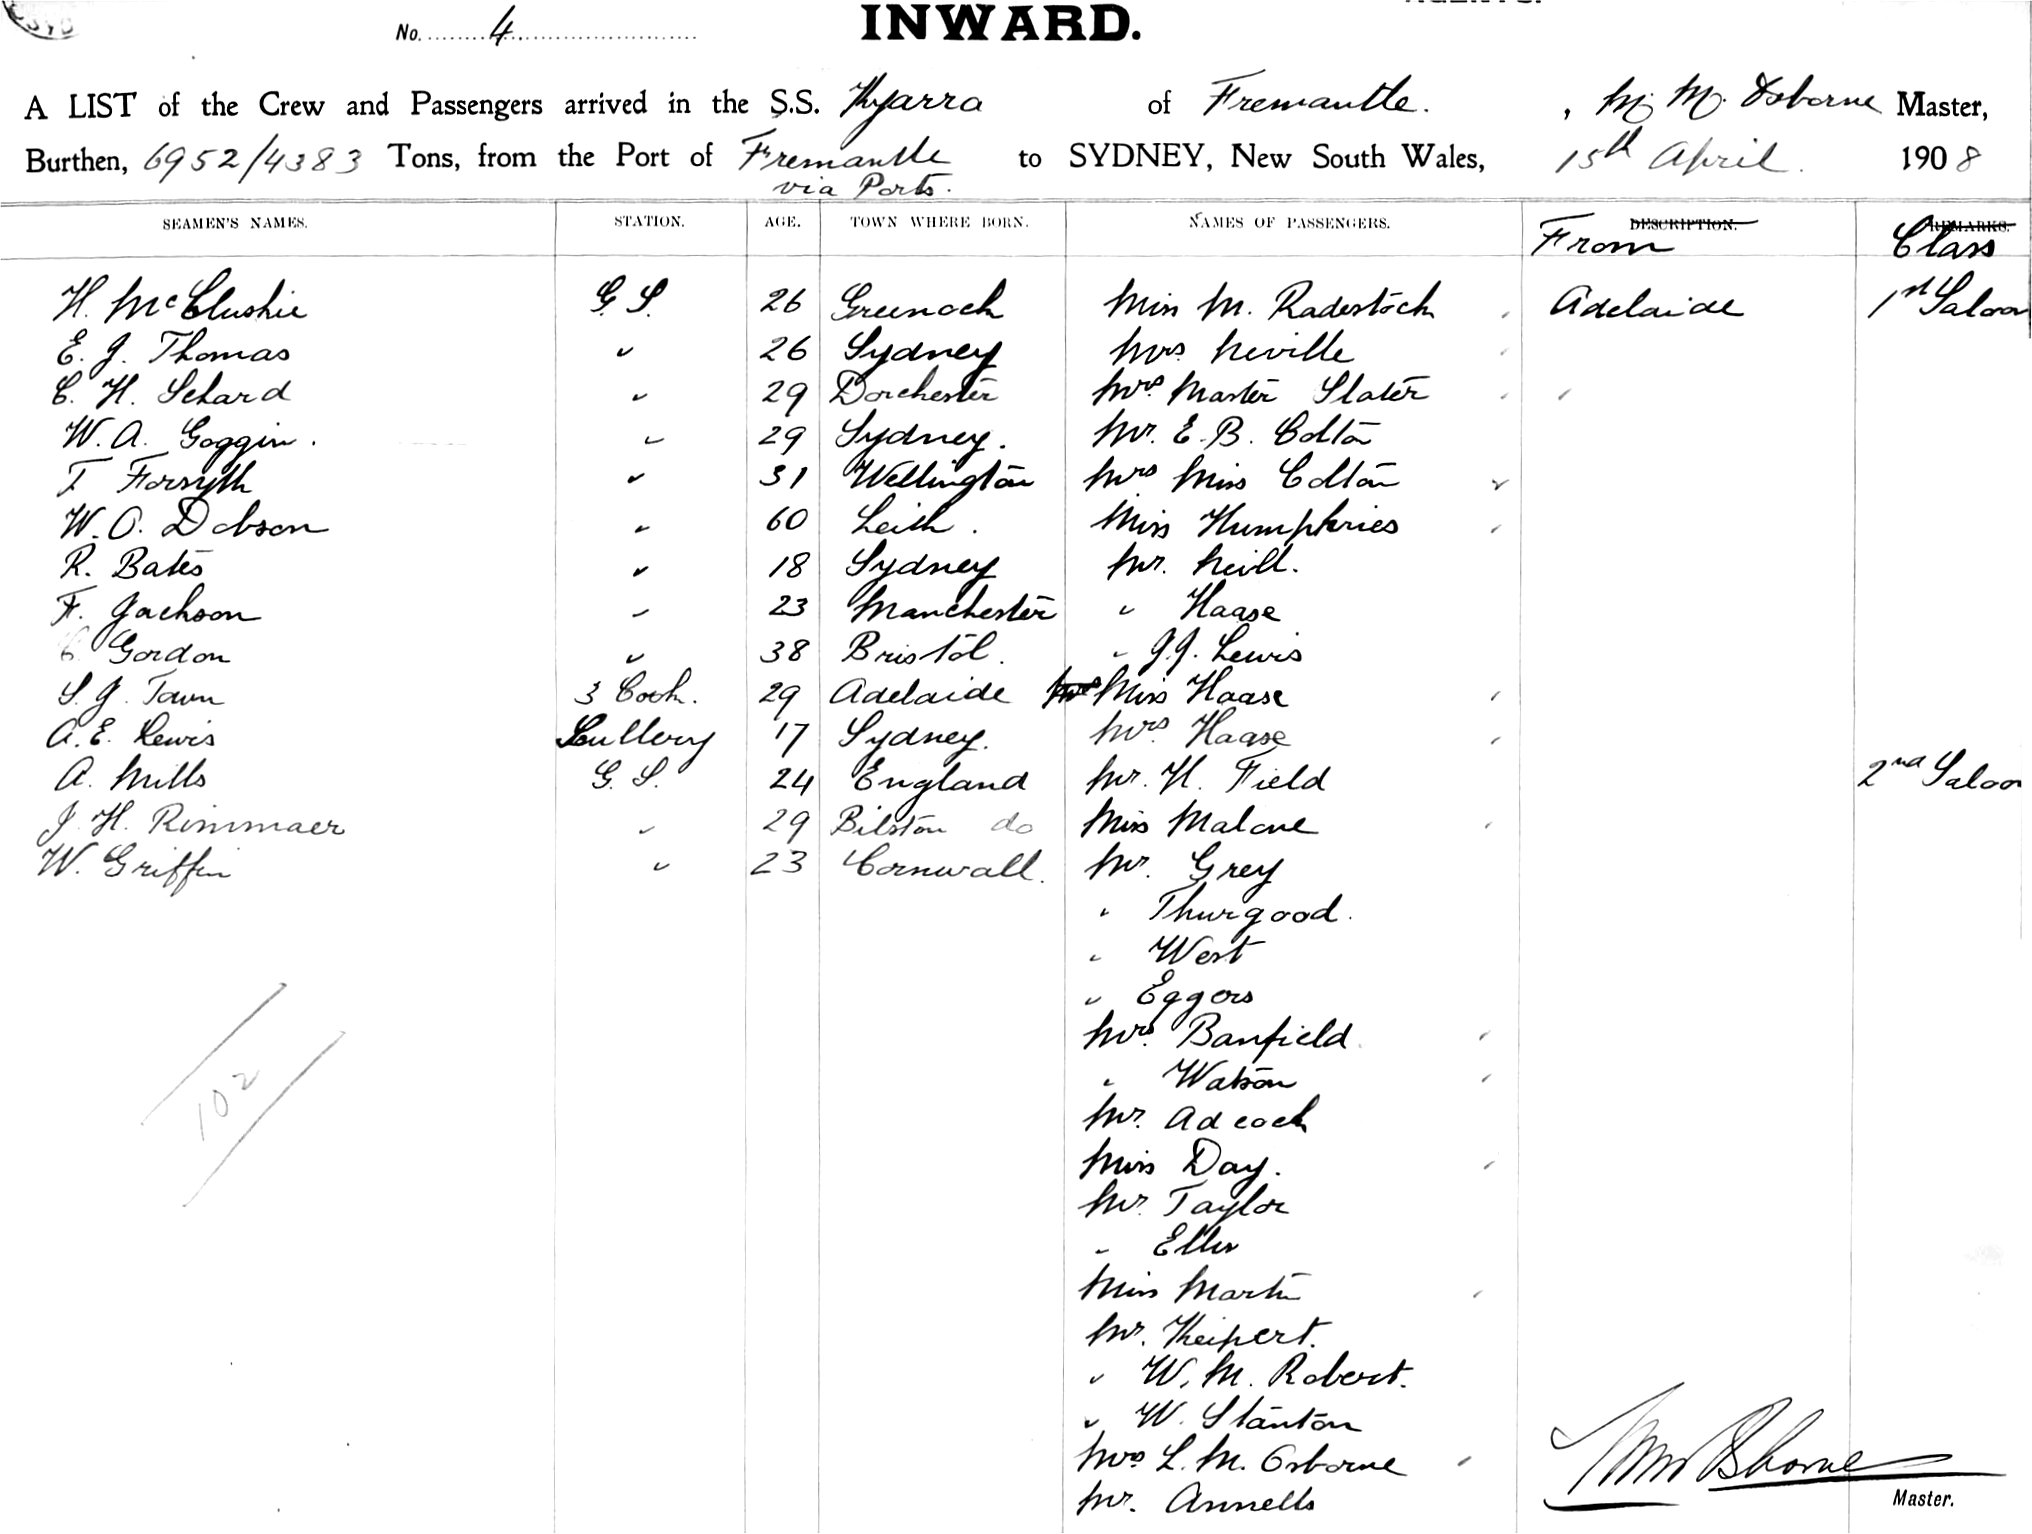 No. 4 INWARD.
A LIST of the Crew and Passengers arrived in the S.S. Kyarra of Fremantle. , M. M. Osborne Master,
Burthen, 6952/4383 Tons, from the Port of Fremantle to SYDNEY, New South Wales, 15th April. 1908
via Ports.
SEAMEN'S NAMES. STATION. AGE. TOWN WHERE BORN. NAMES OF PASSENGERS. DESCRIPTION. REMARKS.
From Class
H. McCluskie G. S. 26 Greenock Miss M. Radestock Adelaide 1st Saloon
E. J. Thomas " 26 Sydney Mrs Neville
C. H. Sehard " 29 Dorchester Mrs. Master Slater
W. A. Goggin. " 29 Sydney. Mr. E. B. Colton
T Forsyth " 31 Wellington Mrs Miss Colton
W. O. Dobson " 60 Leith. Miss Humphries
R. Bates " 18 Sydney Mr. Neill.
F. Jackson " 23 Manchester " Haase
C. Gordon " 38 Bristol. " J. J. Lewis
S. J. Town 3 Cook. 29 Adelaide Miss Haase
A. E. Lewis Scullery 17 Sydney. Mrs. Haase
A. Mills G. S. 24 England Mr. H. Field 2nd Saloon
J. H. Rimmaer " 29 Bilston do Miss Malone
W. Griffin " 23 Cornwall. Mr. Grey
" Thurgood.
" West
" Eggers
Mrs. Banfield
" Watson
Mr. Adcock
Miss Day.
Mr. Taylor
" Ellis
Miss Martin
Mr. Keipert.
" W. M. Robert.
" W. Stanton
Mrs L. M. Osborne
Mr. Annells
102
Master.